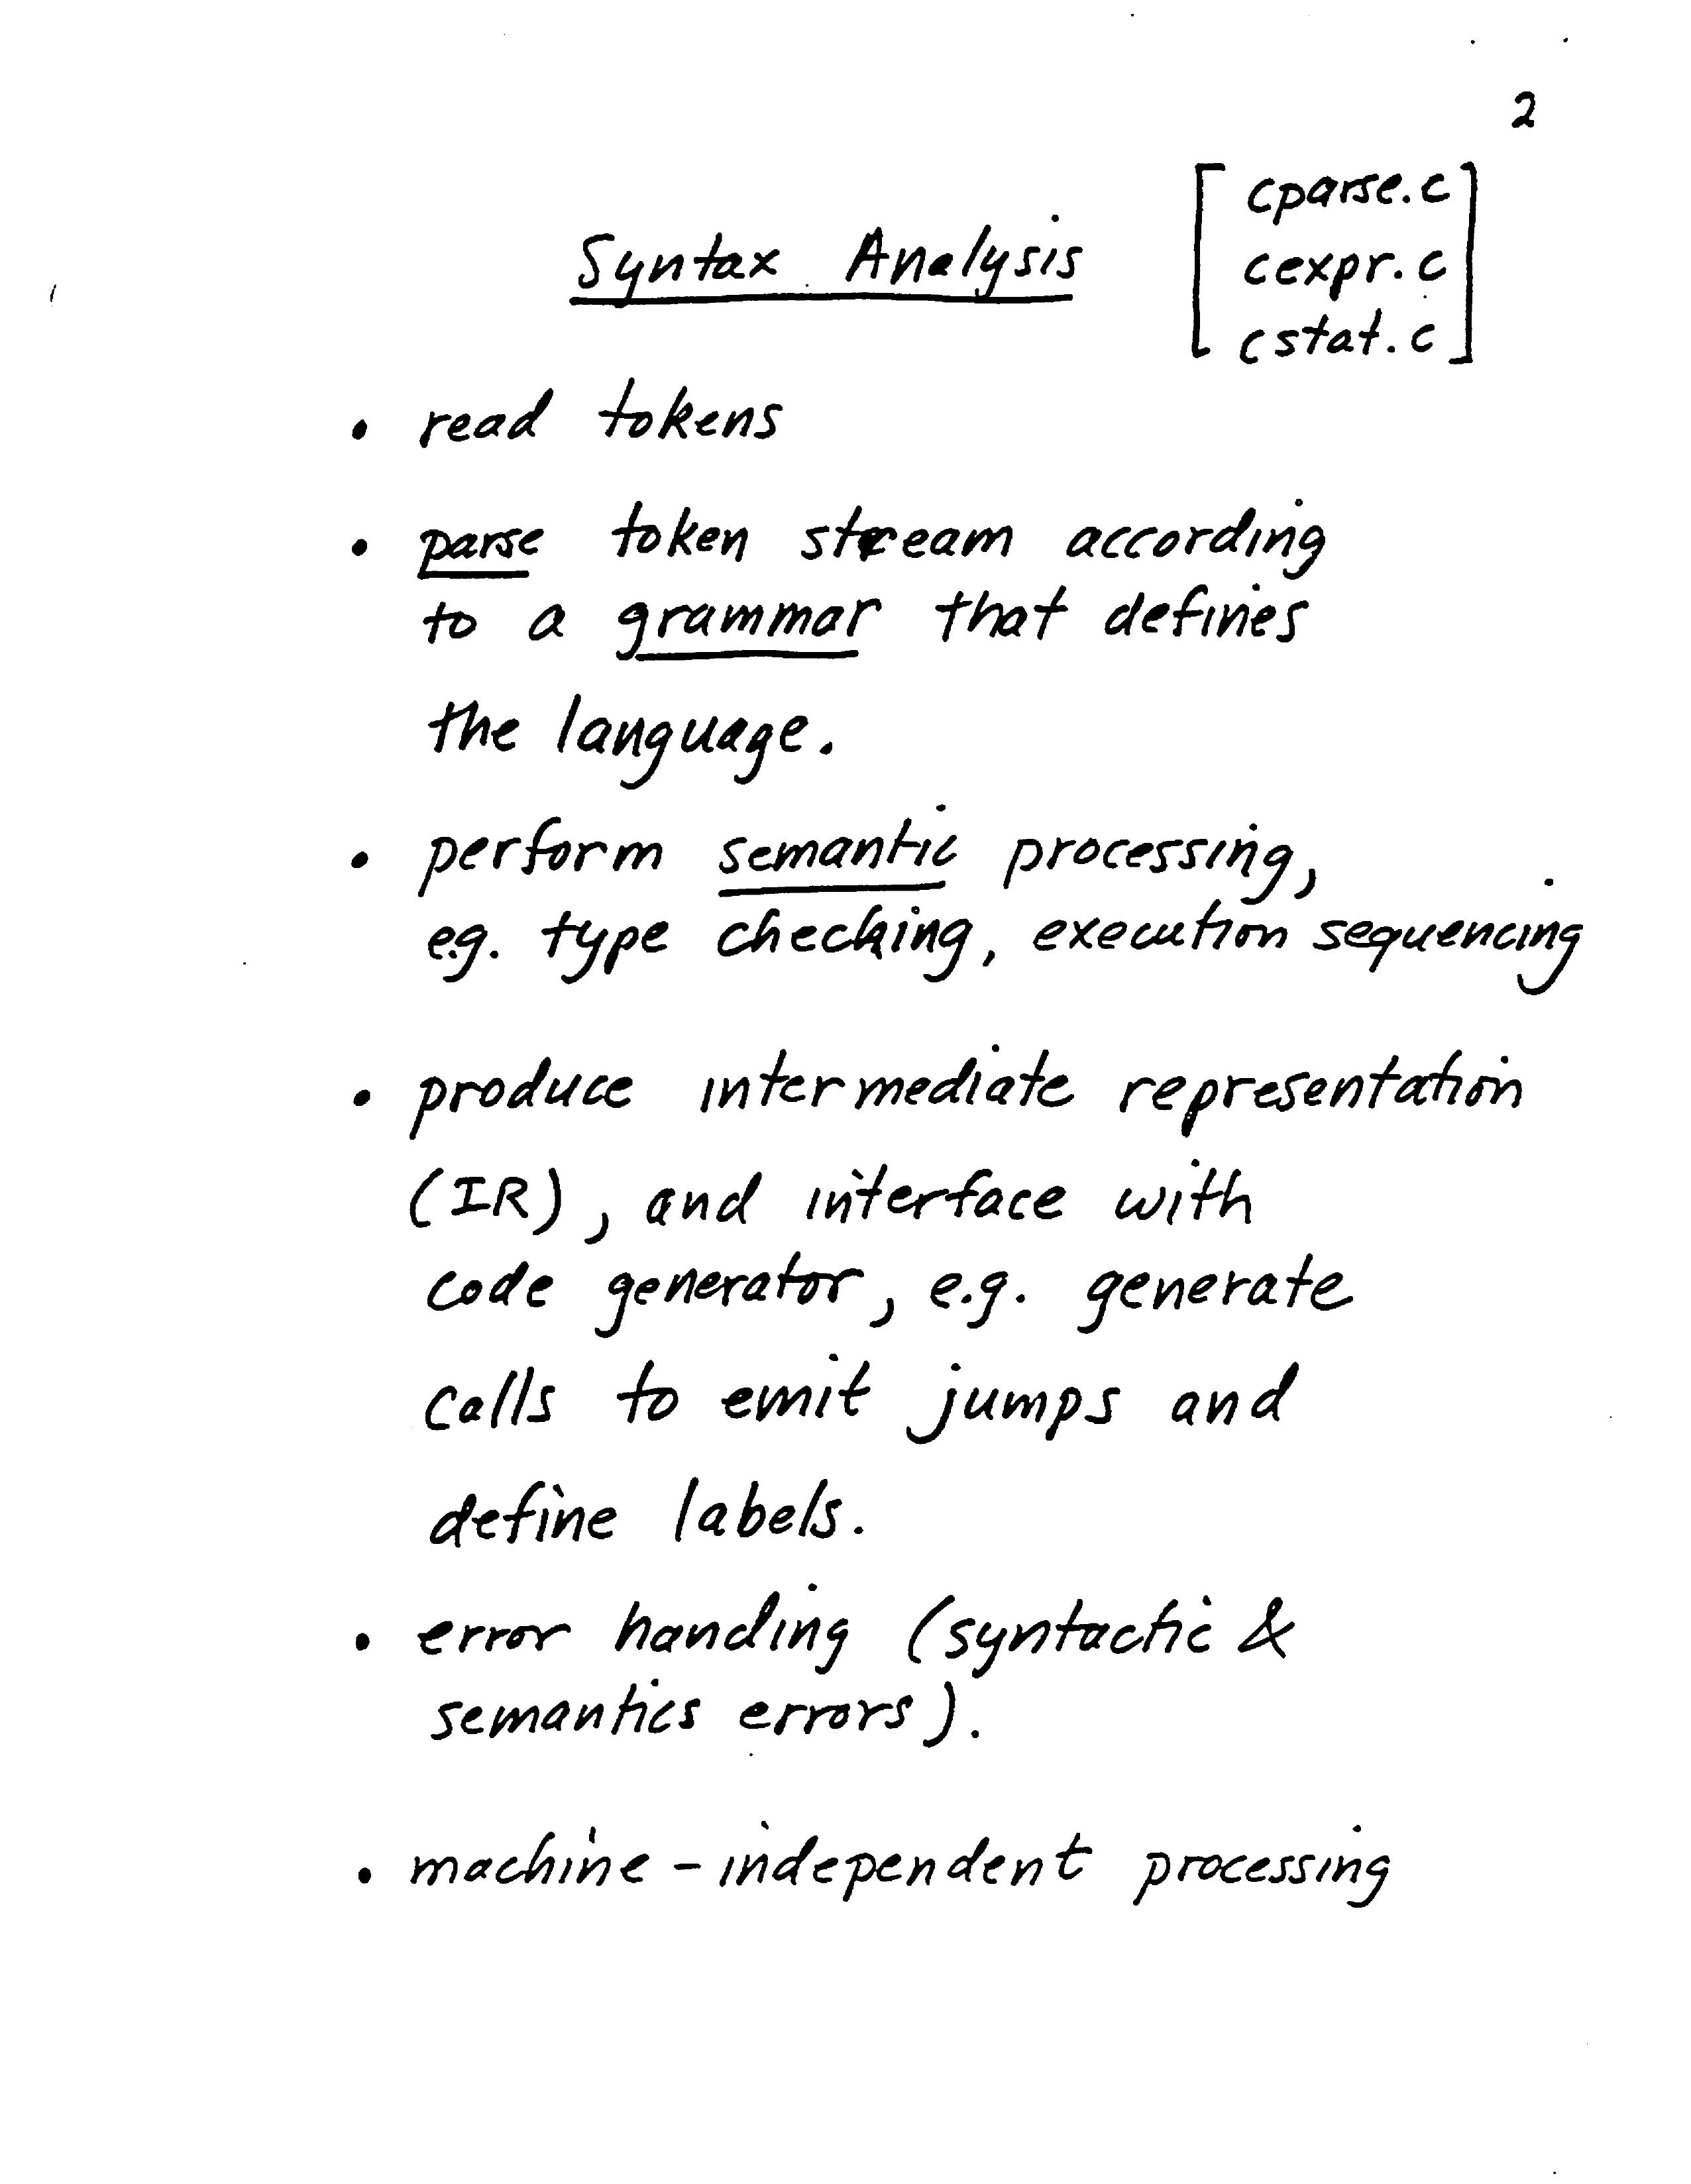 2
Syntax Analysis
[ cparse.c ]
cexpr.c
cstat.c
• read tokens
• parse token stream according
to a grammar that defines
the language.
• perform semantic processing,
e.g. type checking, execution sequencing
• produce intermediate representation
(IR), and interface with
code generator, e.g. generate
calls to emit jumps and
define labels.
• error handing (syntactic &
semantics errors).
• machine-independent processing